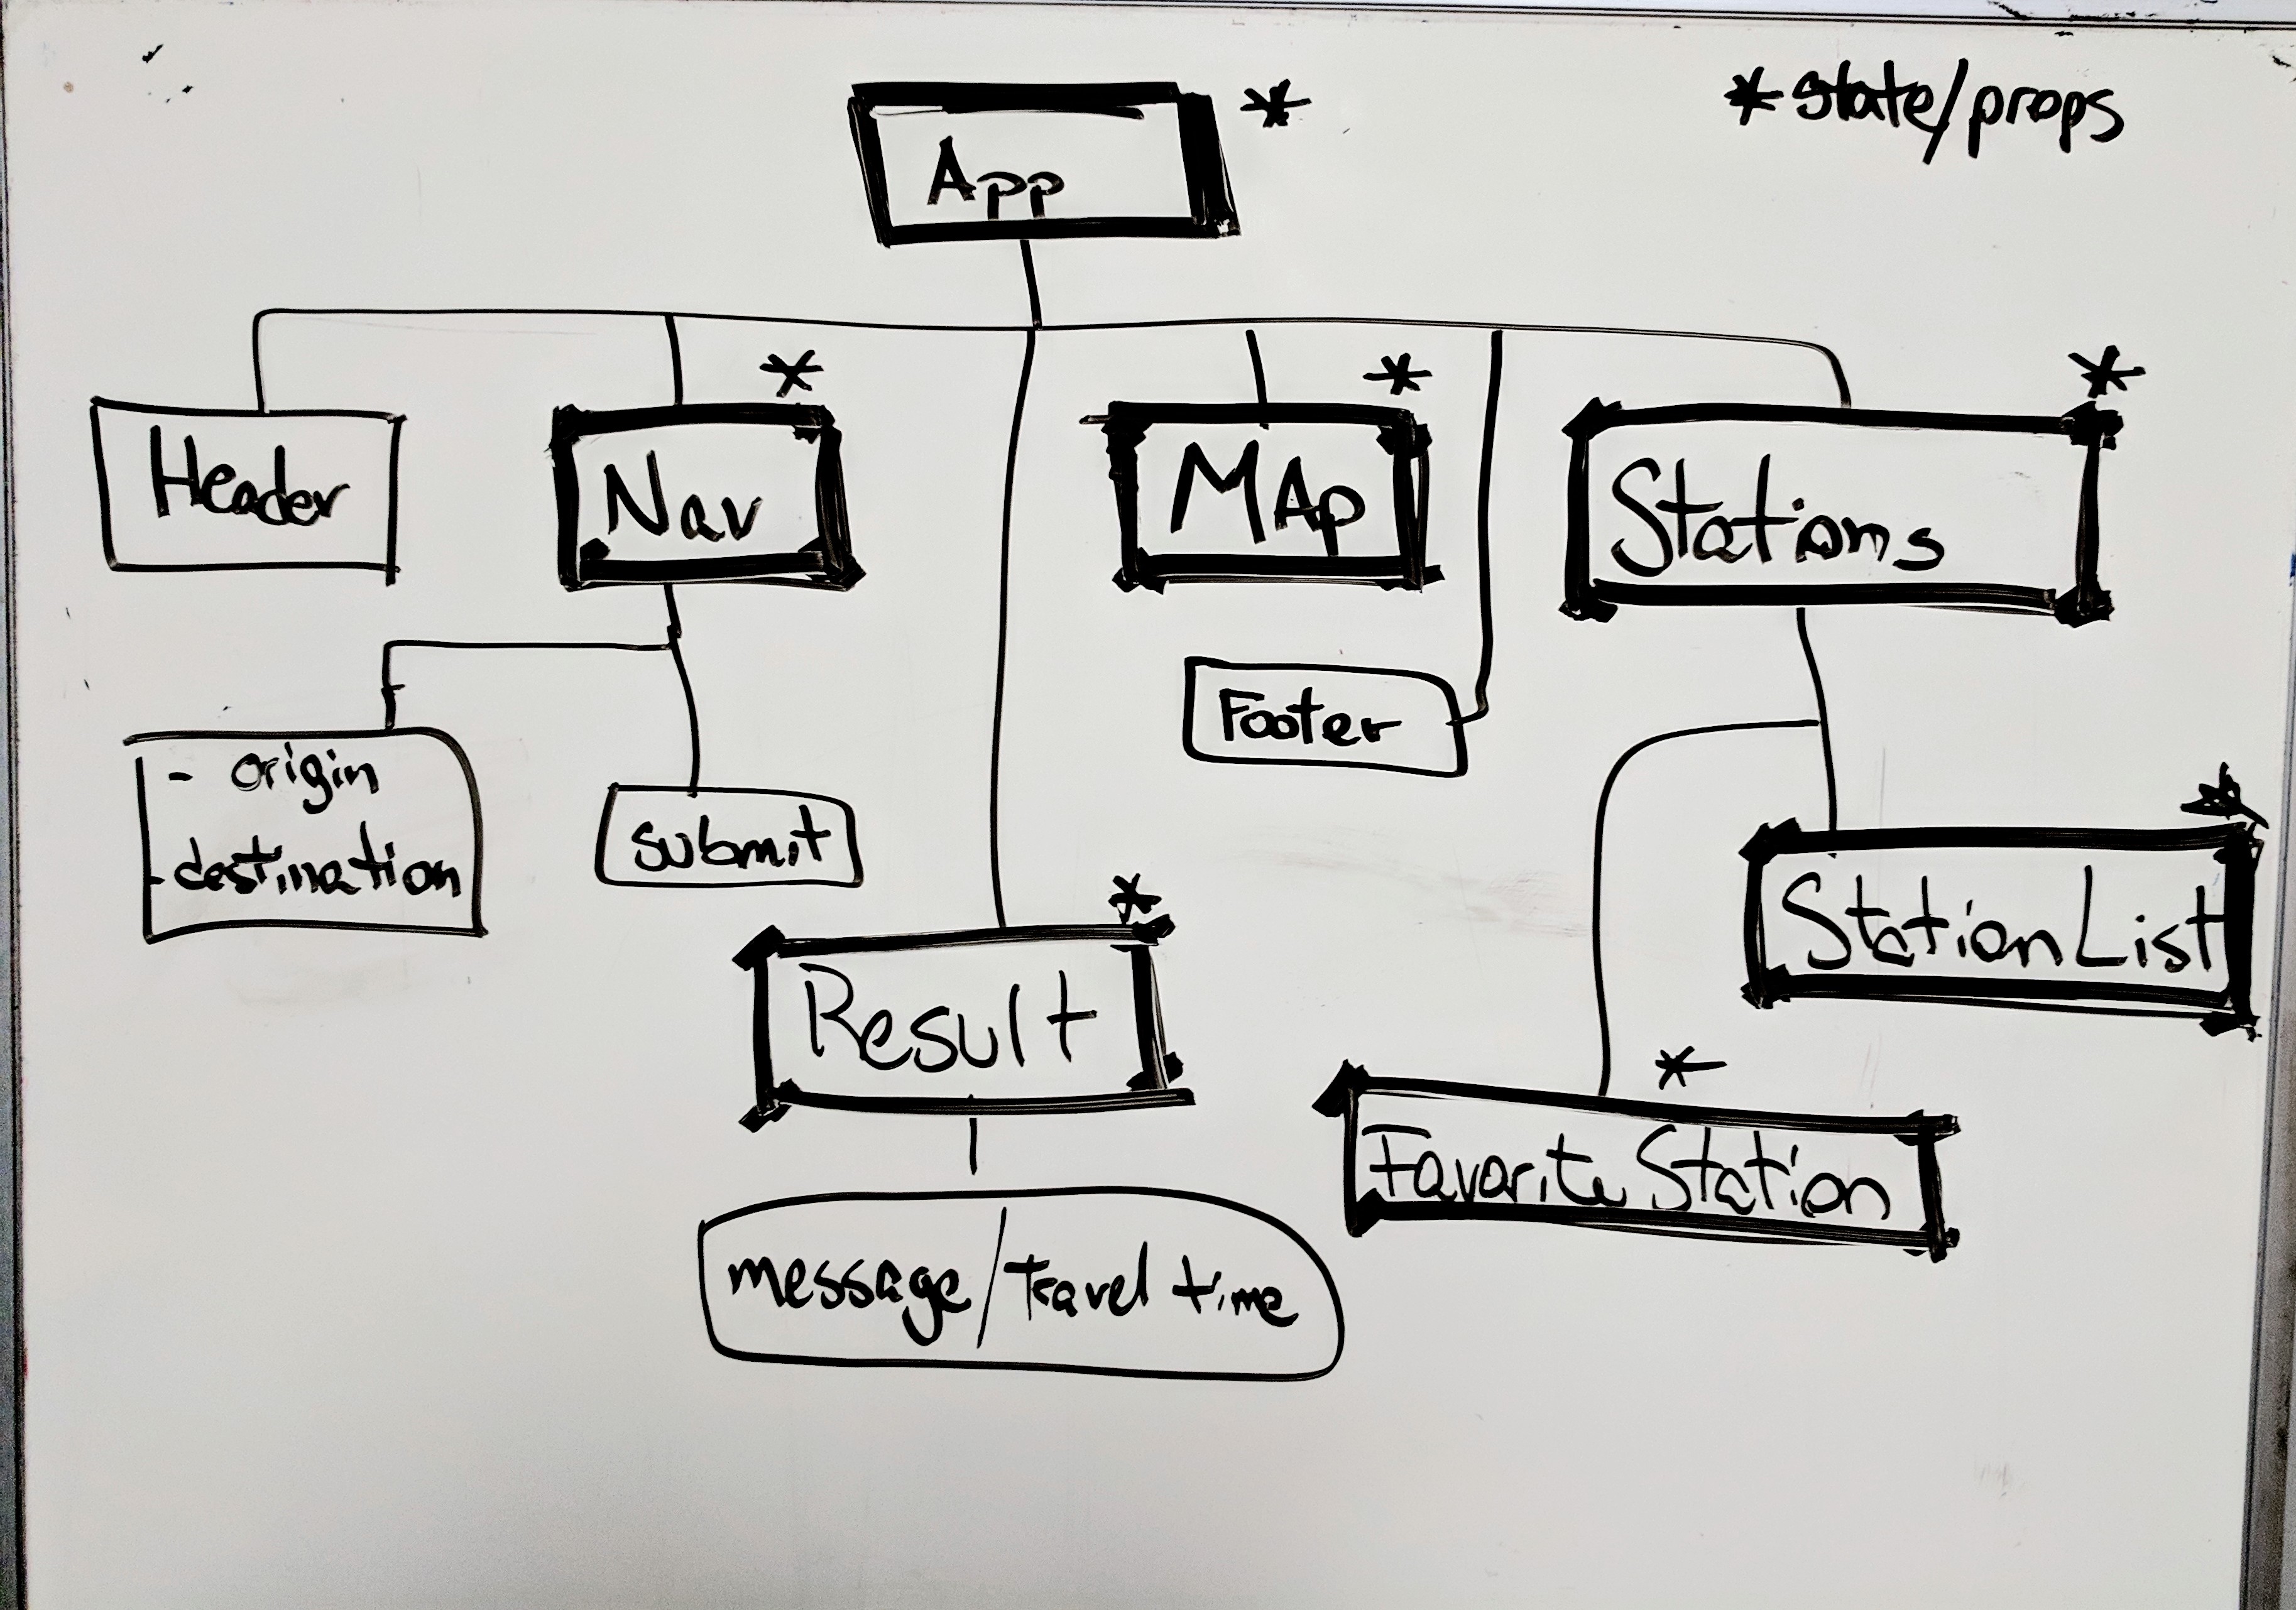 App *
* state/props
Header
* Nav
* MAp
* Stations
- origin
- destination
submit
Footer
* Station List
* Result
* Favorite Station
message/Travel time